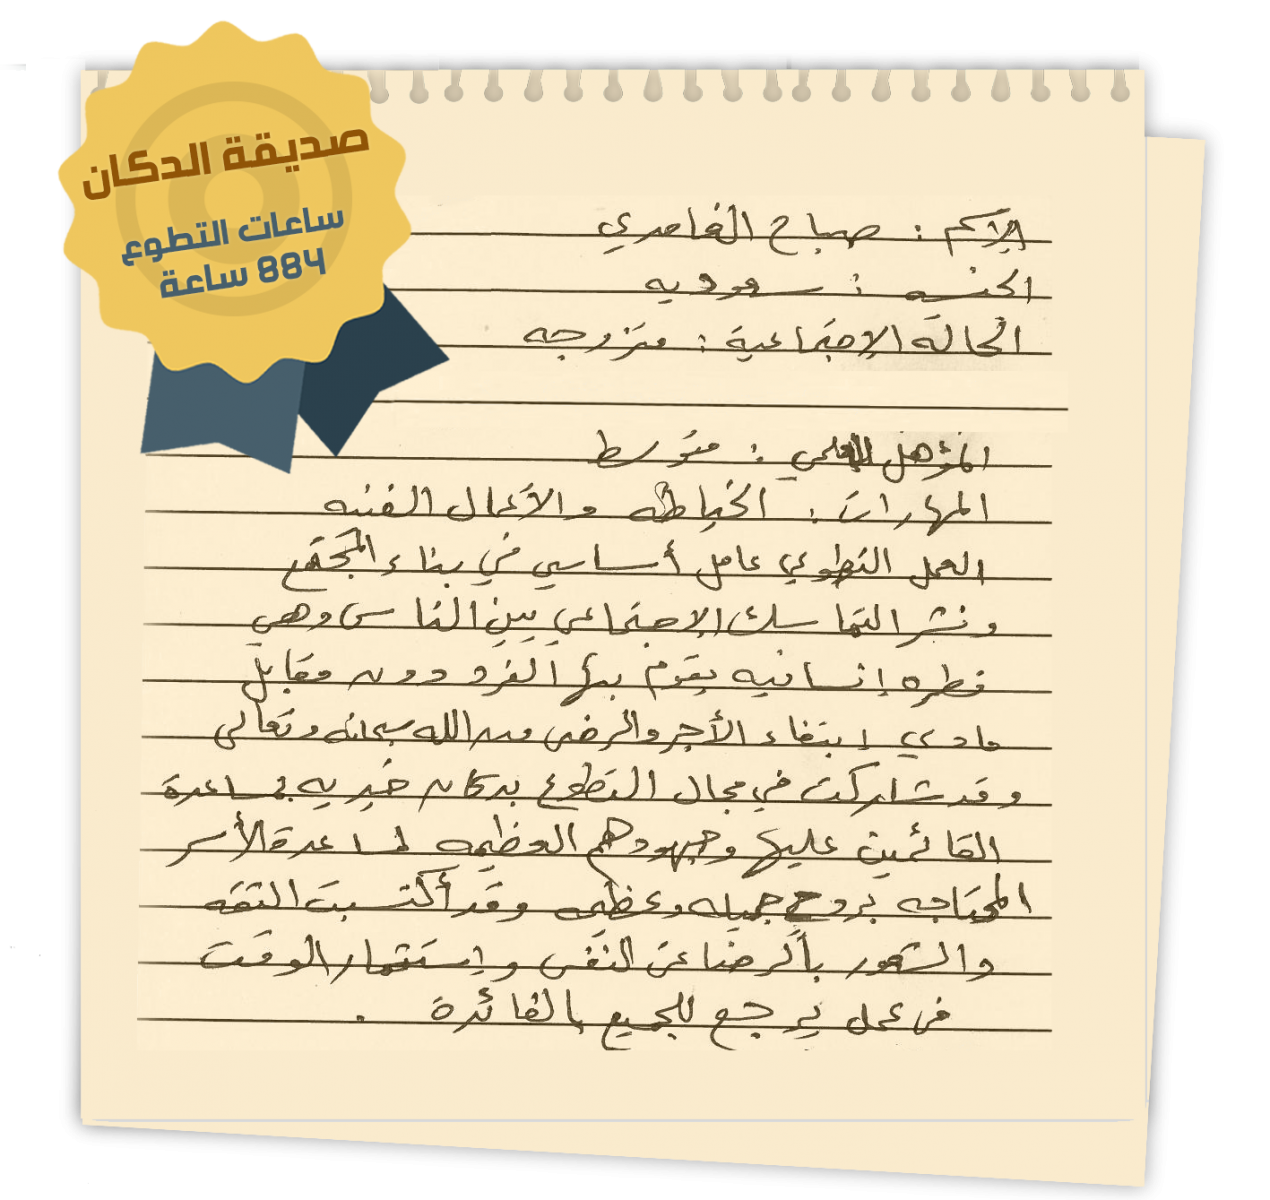 صديقة الدكان
ساعات التطوع
884 ساعة
الاسم : صباح الغامدي
الجنسيه : سعوديه
الحالة الإجتماعية : متزوجه
المؤهل العلمي : متوسط
المهارات : الخياطه والأعمال الفنيه
العمل التطوعي عامل أساسي في بناء المجتمع
ونشر التماسك الإجتماعي بين الناس وهي
فطره إنسانيه يقوم بها الفرد دون مقابل
مادي ابتغاء الأجر والرضى من الله سبحانه وتعالى
وقد شاركت في مجال التطوع بدكان خيريه لمساعدة
القائمين عليها وجهودهم العظيمه لمساعدة الأسر
المحتاجه بروح جميله وعظيمه وقد أكتسبت الثقه
والشعور بالرضا عن النفس وإستثمار الوقت
في عمل يرجع للجميع بالفائدة .